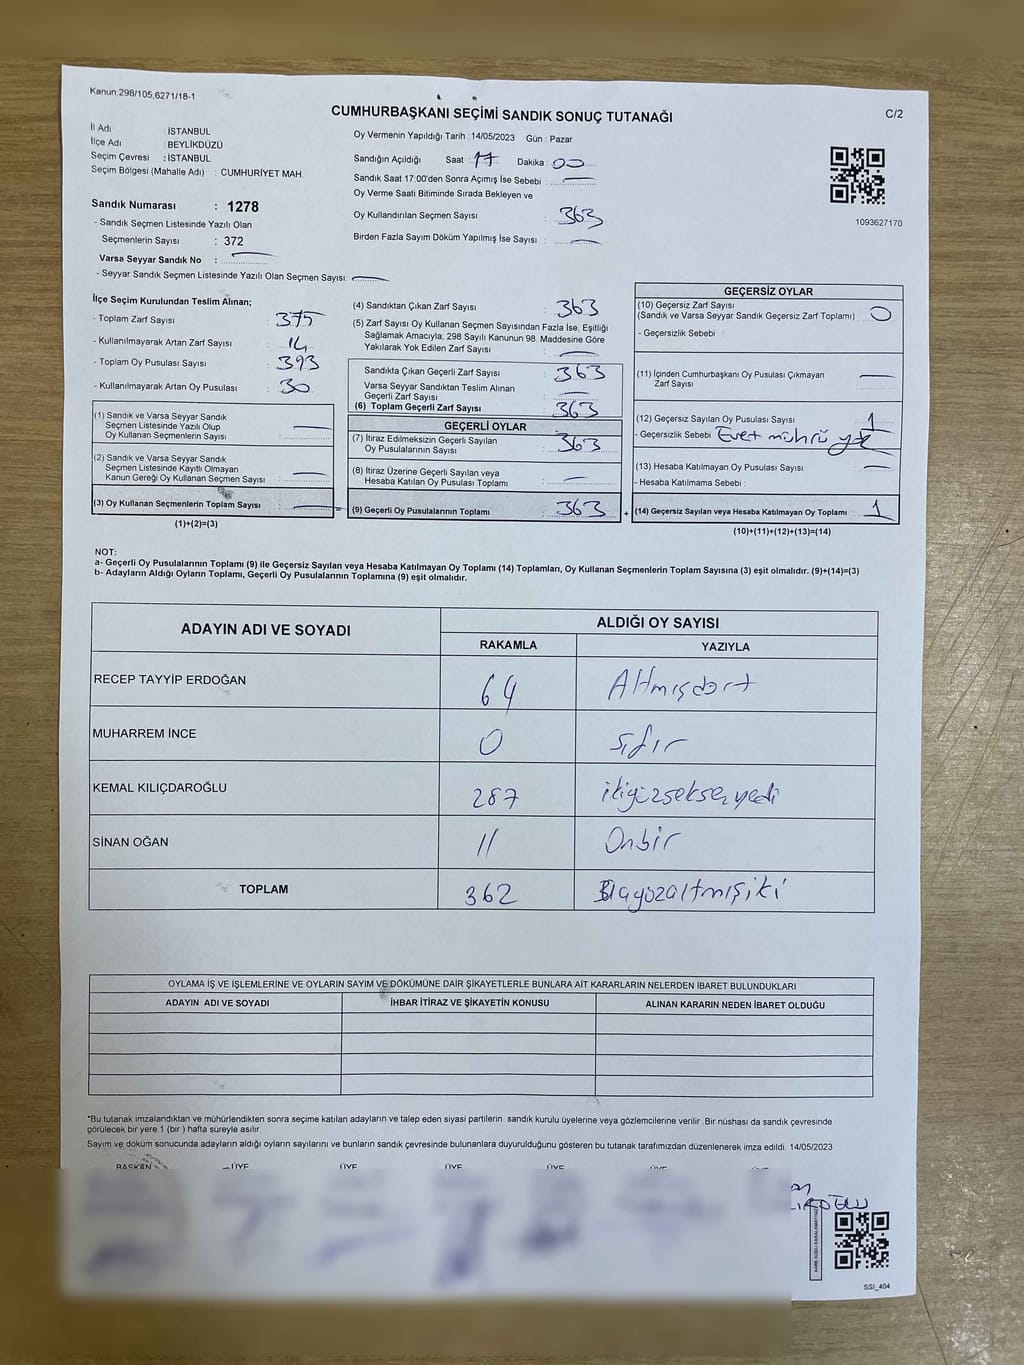 Kanun;298/105,6271/18-1
CUMHURBAŞKANI SEÇİMİ SANDIK SONUÇ TUTANAĞI
C/2
İl Adı : İSTANBUL
İlçe Adı : BEYLİKDÜZÜ
Seçim Çevresi : İSTANBUL
Seçim Bölgesi (Mahalle Adı) : CUMHURİYET MAH.
Sandık Numarası : 1278
- Sandık Seçmen Listesinde Yazılı Olan
Seçmenlerin Sayısı : 372
Varsa Seyyar Sandık No :
- Seyyar Sandık Seçmen Listesinde Yazılı Olan Seçmen Sayısı:
Oy Vermenin Yapıldığı Tarih :14/05/2023 Gün : Pazar
Sandığın Açıldığı Saat : 17 Dakika : 00
Sandık Saat 17:00'den Sonra Açımış İse Sebebi :
Oy Verme Saati Bitiminde Sırada Bekleyen ve
Oy Kullandırılan Seçmen Sayısı : 363
Birden Fazla Sayım Döküm Yapılmış İse Sayısı :
1093627170
İlçe Seçim Kurulundan Teslim Alınan;
- Toplam Zarf Sayısı : 375
- Kullanılmayarak Artan Zarf Sayısı : 14
- Toplam Oy Pusulası Sayısı : 393
- Kullanılmayarak Artan Oy Pusulası : 30
(1) Sandık ve Varsa Seyyar Sandık
Seçmen Listesinde Yazılı Olup
Oy Kullanan Seçmenlerin Sayısı :
(2) Sandık ve Varsa Seyyar Sandık
Seçmen Listesinde Kayıtlı Olmayan
Kanun Gereği Oy Kullanan Seçmen Sayısı :
(3) Oy Kullanan Seçmenlerin Toplam Sayısı :
(1)+(2)=(3)
(4) Sandıktan Çıkan Zarf Sayısı : 363
(5) Zarf Sayısı Oy Kullanan Seçmen Sayısından Fazla İse, Eşitliği
Sağlamak Amacıyla; 298 Sayılı Kanunun 98. Maddesine Göre
Yakılarak Yok Edilen Zarf Sayısı :
Sandıkta Çıkan Geçerli Zarf Sayısı : 363
Varsa Seyyar Sandıktan Teslim Alınan
Geçerli Zarf Sayısı :
(6) Toplam Geçerli Zarf Sayısı : 363
GEÇERLİ OYLAR
(7) İtiraz Edilmeksizin Geçerli Sayılan
Oy Pusulalarının Sayısı : 363
(8) İtiraz Üzerine Geçerli Sayılan veya
Hesaba Katılan Oy Pusulası Toplamı :
(9) Geçerli Oy Pusulalarının Toplamı : 363
GEÇERSİZ OYLAR
(10) Geçersiz Zarf Sayısı
(Sandık ve Varsa Seyyar Sandık Geçersiz Zarf Toplamı) : 0
- Geçersizlik Sebebi :
(11) İçinden Cumhurbaşkanı Oy Pusulası Çıkmayan
Zarf Sayısı :
(12) Geçersiz Sayılan Oy Pusulası Sayısı : 1
- Geçersizlik Sebebi : Evet mührü yok
(13) Hesaba Katılmayan Oy Pusulası Sayısı :
- Hesaba Katılmama Sebebi :
+ (14) Geçersiz Sayılan veya Hesaba Katılmayan Oy Toplamı : 1
(10)+(11)+(12)+(13)=(14)
NOT:
a- Geçerli Oy Pusulalarının Toplamı (9) ile Geçersiz Sayılan veya Hesaba Katılmayan Oy Toplamı (14) Toplamları, Oy Kullanan Seçmenlerin Toplam Sayısına (3) eşit olmalıdır. (9)+(14)=(3)
b- Adayların Aldığı Oyların Toplamı, Geçerli Oy Pusulalarının Toplamına (9) eşit olmalıdır.
ADAYIN ADI VE SOYADI
ALDIĞI OY SAYISI
RAKAMLA YAZIYLA
RECEP TAYYİP ERDOĞAN 64 Altmışdört
MUHARREM İNCE 0 sıfır
KEMAL KILIÇDAROĞLU 287 ikiyüzseksenyedi
SİNAN OĞAN 11 Onbir
TOPLAM 362
OYLAMA İŞ VE İŞLEMLERİNE VE OYLARIN SAYIM VE DÖKÜMÜNE DAİR ŞİKAYETLERLE BUNLARA AİT KARARLARIN NELERDEN İBARET BULUNDUKLARI
ADAYIN ADI VE SOYADI İHBAR İTİRAZ VE ŞİKAYETİN KONUSU ALINAN KARARIN NEDEN İBARET OLDUĞU
*Bu tutanak imzalandıktan ve mühürlendikten sonra seçime katılan adayların ve talep eden siyasi partilerin sandık kurulu üyelerine veya gözlemcilerine verilir .Bir nüshası da sandık çevresinde
görülecek bir yere 1 (bir ) hafta süreyle asılır.
Sayım ve döküm sonucunda adayların aldığı oyların sayılarını ve bunların sandık çevresinde bulunanlara duyurulduğunu gösteren bu tutanak tarafımızdan düzenlenerek imza edildi. 14/05/2023
BAŞKAN ÜYE ÜYE ÜYE ÜYE ÜYE ÜYE
SSI_404